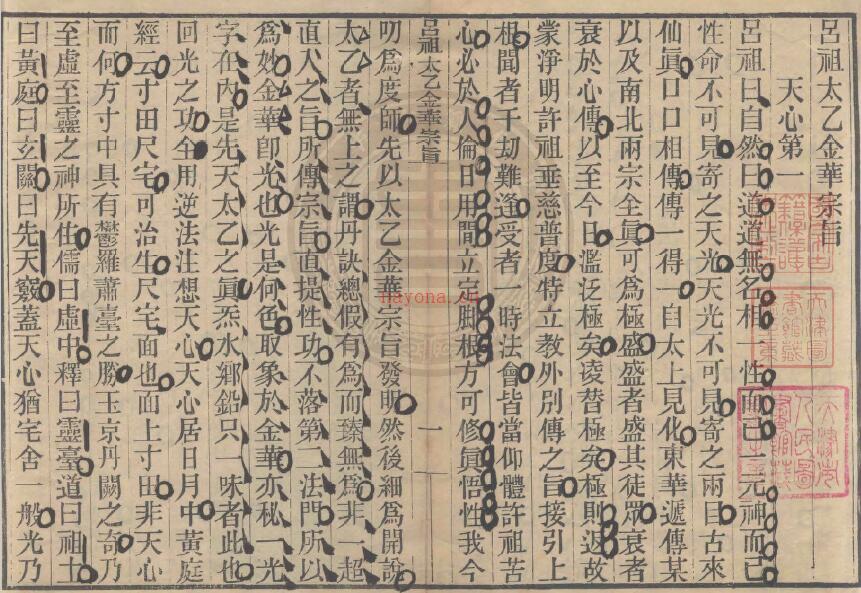 呂祖太乙金華宗旨
天心第一
呂祖曰自然曰道道無名相一性而已一元神而已
性命不可見寄之天光天光不可見寄之兩目古來
仙眞口口相傳傳一得一自太上見化東華遞傳某
以及南北兩宗全眞可為極盛盛者盛其徒眾衰者
衰於心傳以至今日濫泛極矣凌替極矣極則返故
蒙淨明許祖垂慈普度特立教外別傳之旨接引上
根聞者千劫難逢受者一時法會皆當仰體許祖苦
心必於人倫日用間立定脚根方可修眞悟性我今
呂祖太乙金華宗旨 一
叨為度師先以太乙金華宗旨發明然後細為開說
太乙者無上之謂丹訣總假有為而臻無為非一超
直入之旨所傳宗旨直提性功不落第二法門所以
為妙金華即光也光是何色取象於金華亦秘一光
字在內是先天太乙之眞炁水鄉鉛只一味者此也
回光之功全用逆法注想天心天心居日月中黃庭
經云寸田尺宅可治生尺宅面也面上寸田非天心
而何方寸中具有鬱羅蕭臺之勝玉京丹闕之奇乃
至虛至靈之神所住儒曰虛中釋曰靈臺道曰祖土
曰黃庭曰玄關曰先天竅蓋天心猶宅舍一般光乃
nayona.cn